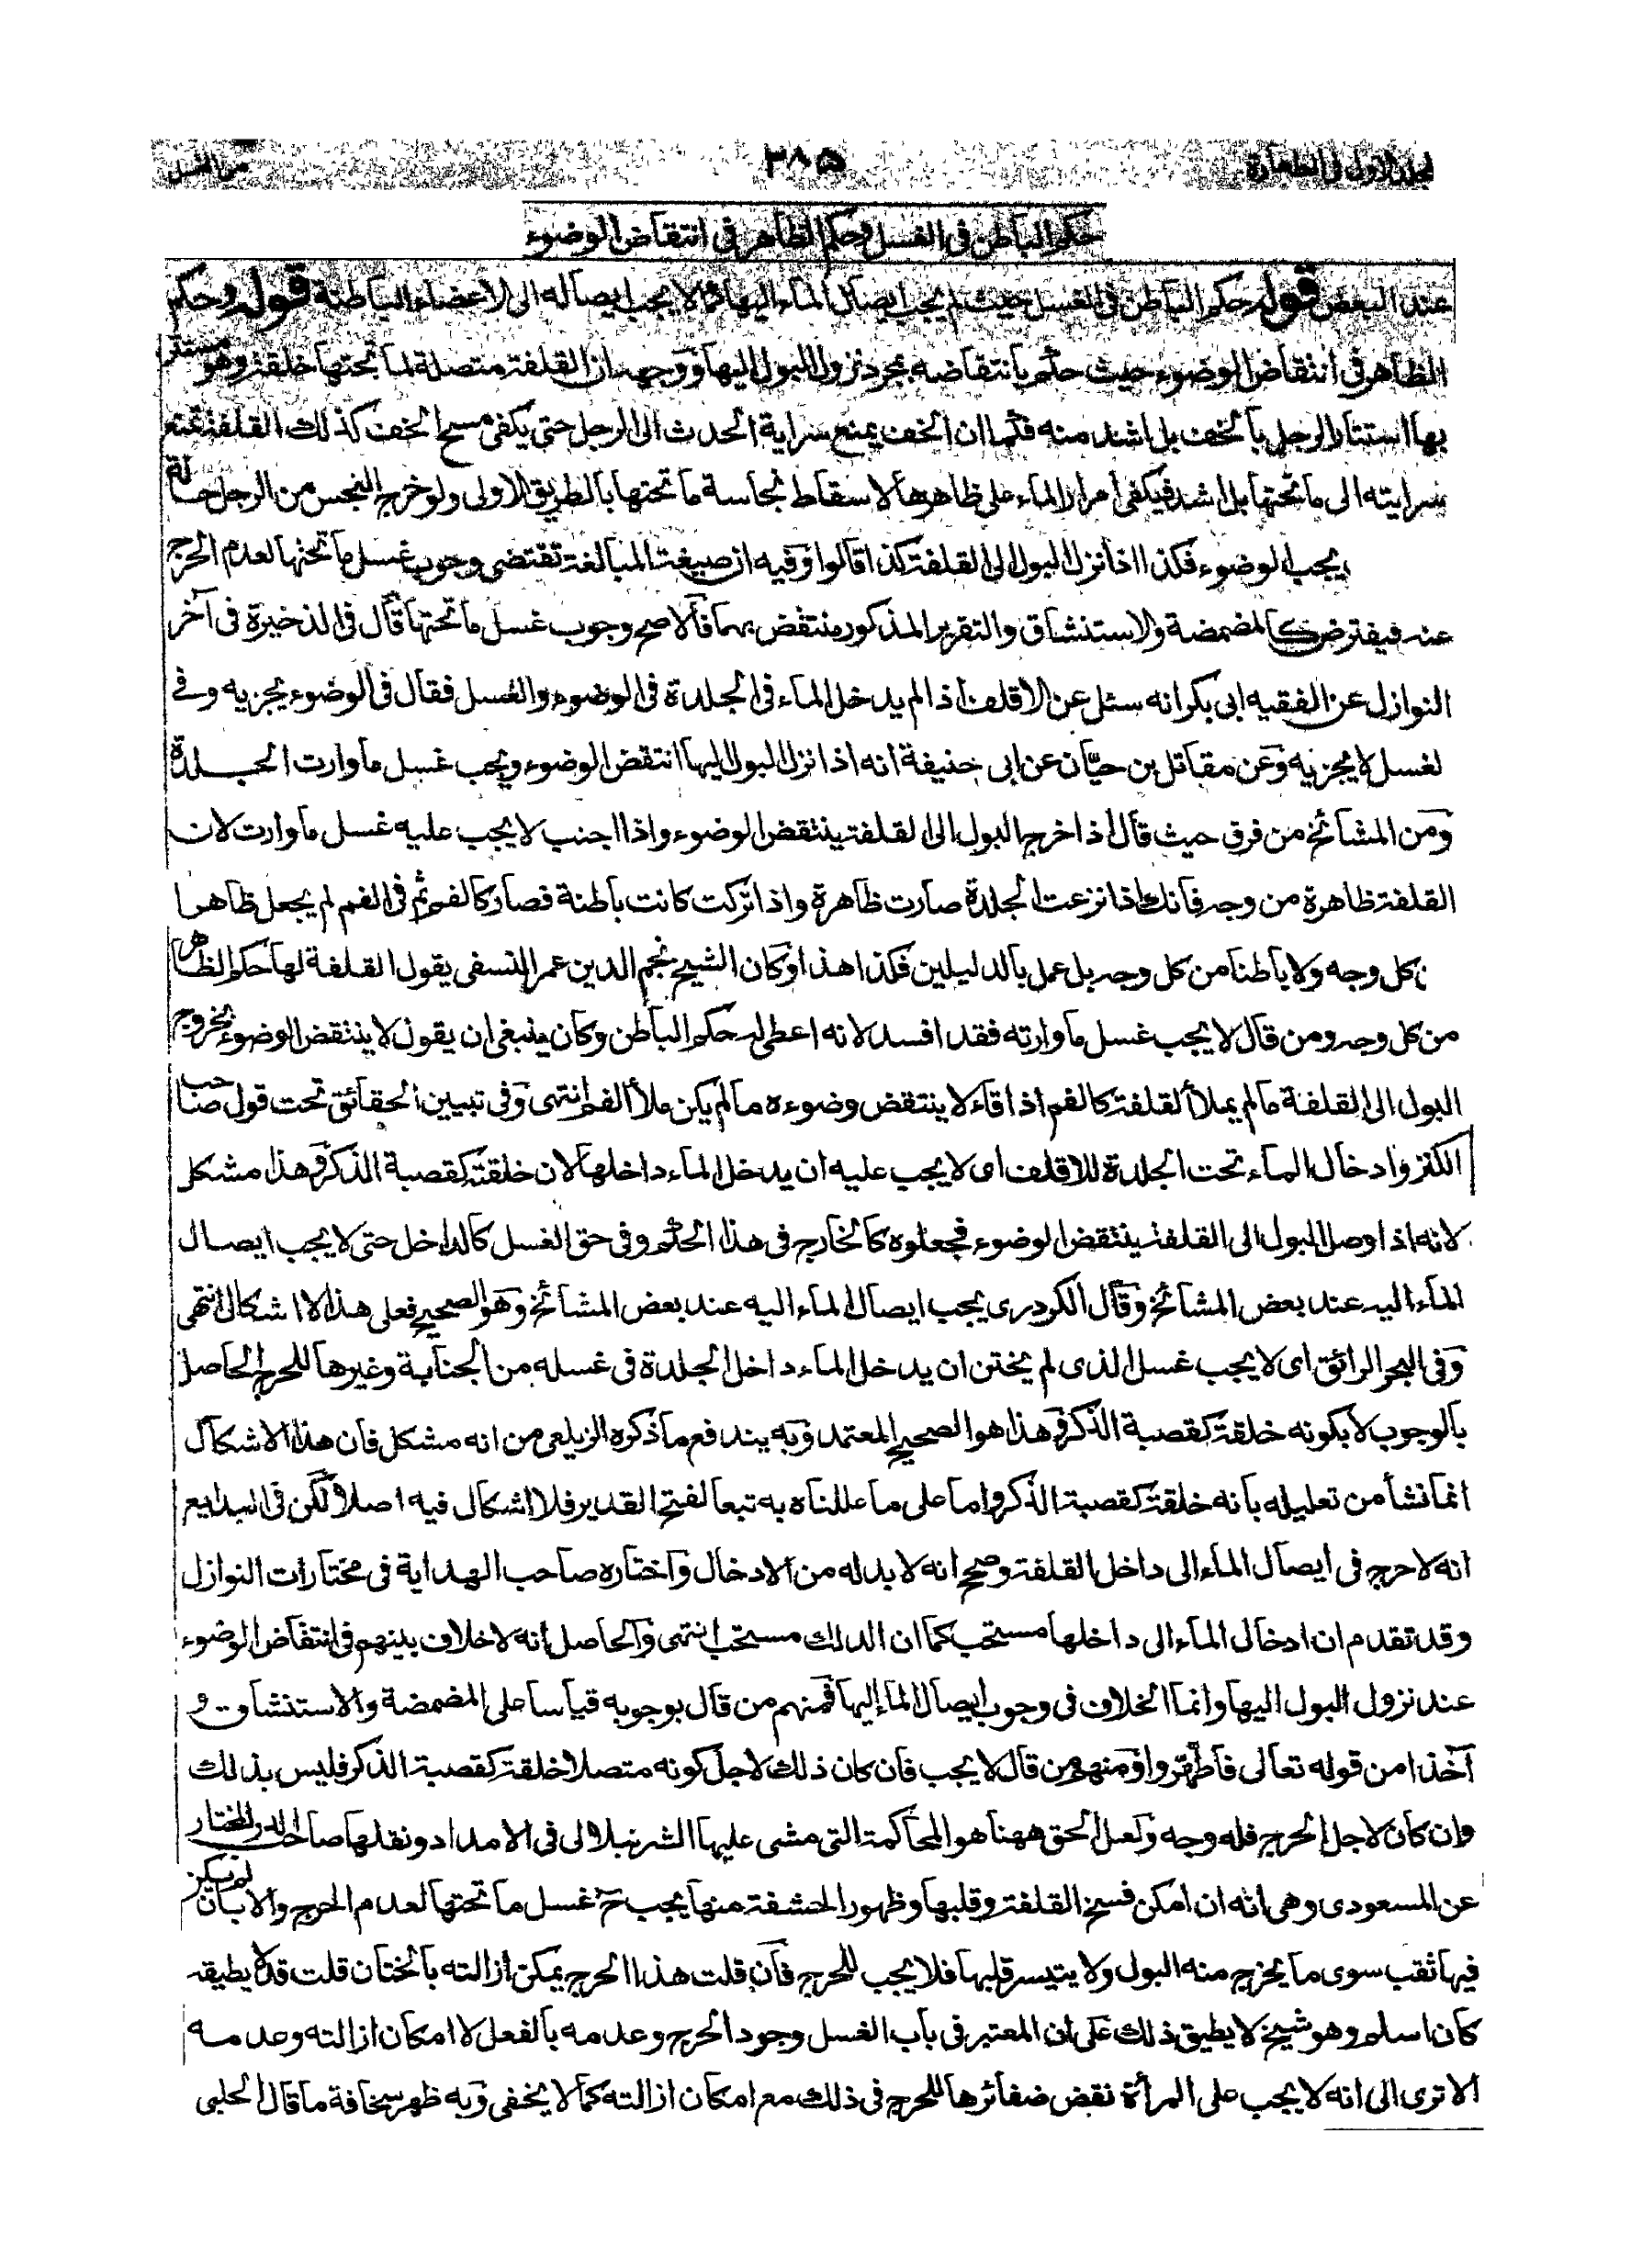 المجلد الاول فى الطهارة ٣٨٥ من الغسل
حكم الباطن فى الغسل وحكم الظاهر فى انتقاض الوضوء
عند البعض قوله حكم الباطن فى الغسل حيث لم يجب ايصال الماء اليها كما لا يجب ايصاله الى الاعضاء الباطنة قوله وحكم
الظاهر فى انتقاض الوضوء حيث حكم بانتقاضه بمجرد نزول البول اليها ووجهه ان القلفة متصلة لما تحتها خلقة وهو مستتر
بها استتار الرجل بالخف بل اشد منه فكما ان الخف يمنع سراية الحدث الى الرجل حتى يكفى مسح الخف كذلك القلفة تمنع
سرايته الى ما تحتها بل اشد فيكفى امرار الماء على ظاهرها لاسقاط نجاسة ما تحتها بالطريق الاولى ولو خرج النجس من الرجل حالة
يجب الوضوء فكذا اذا نزل البول الى القلفة كذا قالوا وفيه ان صيغة المبالغة تقتضى وجوب غسل ما تحتها لعدم الحرج
عنه فيفترض كالمضمضة والاستنشاق والتقرير المذكور منتقض بهما فالاصح وجوب غسل ما تحتها قال فى الذخيرة فى آخر
النوازل عن الفقيه ابى بكر انه سئل عن الاقلف اذا لم يدخل الماء فى الجلدة فى الوضوء والغسل فقال فى الوضوء يجزيه وفى
لغسل لا يجزيه وعن مقاتل بن حيان عن ابى حنيفة انه اذا نزل البول اليها انتقض الوضوء ويجب غسل ما وارت الجلدة
ومن المشائخ من فرق حيث قال اذا خرج البول الى القلفة ينتقض الوضوء واذا اجنب لا يجب عليه غسل ما وارت لان
القلفة ظاهرة من وجه فانك اذا نزعت الجلدة صارت ظاهرة واذا تركت كانت باطنة فصار كالفم ثم فى الفم لم يجعل ظاهرا
من كل وجه ولا باطنا من كل وجه بل عمل بالدليلين فكذا هذا وكان الشيخ نجم الدين عمر النسفى يقول القلفة لها حكم الظاهر
من كل وجه ومن قال لا يجب غسل ما وارته فقد افسد لانه اعطى له حكم الباطن وكان ينبغى ان يقول لا ينتقض الوضوء بخروج
البول الى القلفة ما لم يملأ القلفة كالفم اذا قاء لا ينتقض وضوءه ما لم يكن ملأ الفم انتهى وفى تبيين الحقائق تحت قول صاحب
الكنز وادخال الماء تحت الجلدة للاقلف اى لا يجب عليه ان يدخل الماء داخلها لان خلقته كقصبة الذكر وهذا مشكل
لانه اذا وصل البول الى القلفة ينتقض الوضوء فجعلوه كالخارج فى هذا الحكم وفى حق الغسل كالداخل حتى لا يجب ايصال
الماء اليه عند بعض المشائخ وقال الكردرى يجب ايصال الماء اليه عند بعض المشائخ وهو الصحيح فعلى هذا لا اشكال انتهى
وفى البحر الرائق اى لا يجب غسل الذى لم يختن ان يدخل الماء داخل الجلدة فى غسله من الجنابة وغيرها للحرج الحاصل
بالوجوب لا بكونه خلقة كقصبة الذكر وهذا هو الصحيح المعتمد وبه يندفع ما ذكره الزيلعى من انه مشكل فان هذا الاشكال
انما نشأ من تعليله بانه خلقة كقصبة الذكر واما على ما عللناه به تبعا لفتح القدير فلا اشكال فيه اصلا لكن فى البدايع
انه لا حرج فى ايصال الماء الى داخل القلفة وصحح انه لا بد له من الادخال واختاره صاحب الهداية فى مختارات النوازل
وقد تقدم ان ادخال الماء الى داخلها مستحب كما ان الدلك مستحب انتهى والحاصل انه لا خلاف بينهم فى انتقاض الوضوء
عند نزول البول اليها وانما الخلاف فى وجوب ايصال الماء اليها فمنهم من قال بوجوبه قياسا على المضمضة والاستنشاق و
آخذا من قوله تعالى فاطهروا ومنهم من قال لا يجب فان كان ذلك لاجل كونه متصلا خلقة كقصبة الذكر فليس بذلك
وان كان لاجل الحرج فله وجه ولعل الحق ههنا هو المحاكمة التى مشى عليها الشرنبلالى فى الامداد ونقلها صاحب الدر المختار
عن المسعودى وهى انه ان امكن فسخ القلفة وقلبها وظهور الحشفة منها يجب ح غسل ما تحتها لعدم الحرج والا بان لم يكن
فيها ثقب سوى ما يخرج منه البول ولا يتيسر قلبها فلا يجب للحرج فان قلت هذا الحرج يمكن ازالته بالختان قلت قد لا يطيقه
كان اسلم وهو شيخ لا يطيق ذلك على ان المعتبر فى باب الغسل وجود الحرج وعدمه بالفعل لا امكان ازالته وعدمه
الا ترى الى انه لا يجب على المرأة نقض ضفائرها للحرج فى ذلك مع امكان ازالته كما لا يخفى وبه ظهر سخافة ما قال الحلبى